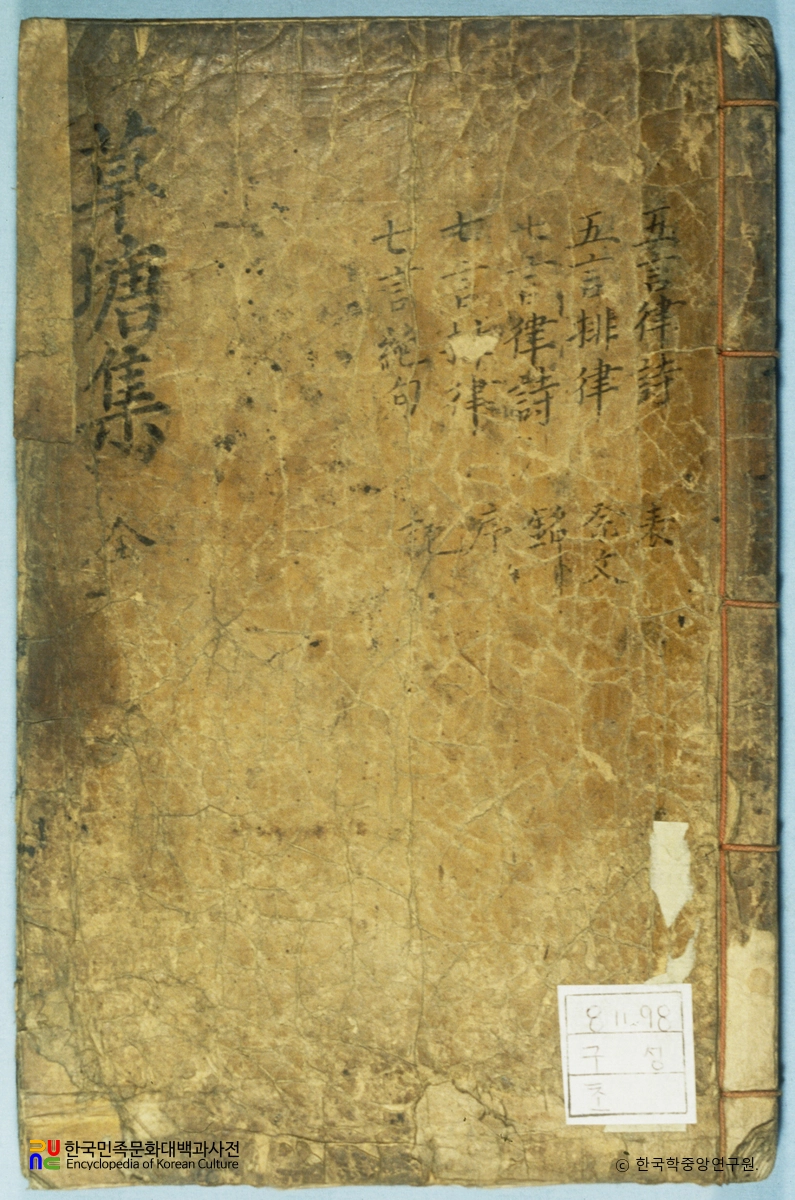 五言律詩 表
五言排律 祭文
七言律詩 銘
七言排律 序
七言絶句 記
草塘集 全
811.98
구 성
초
한국민족문화대백과사전
Encyclopedia of Korean Culture
© 한국학중앙연구원.